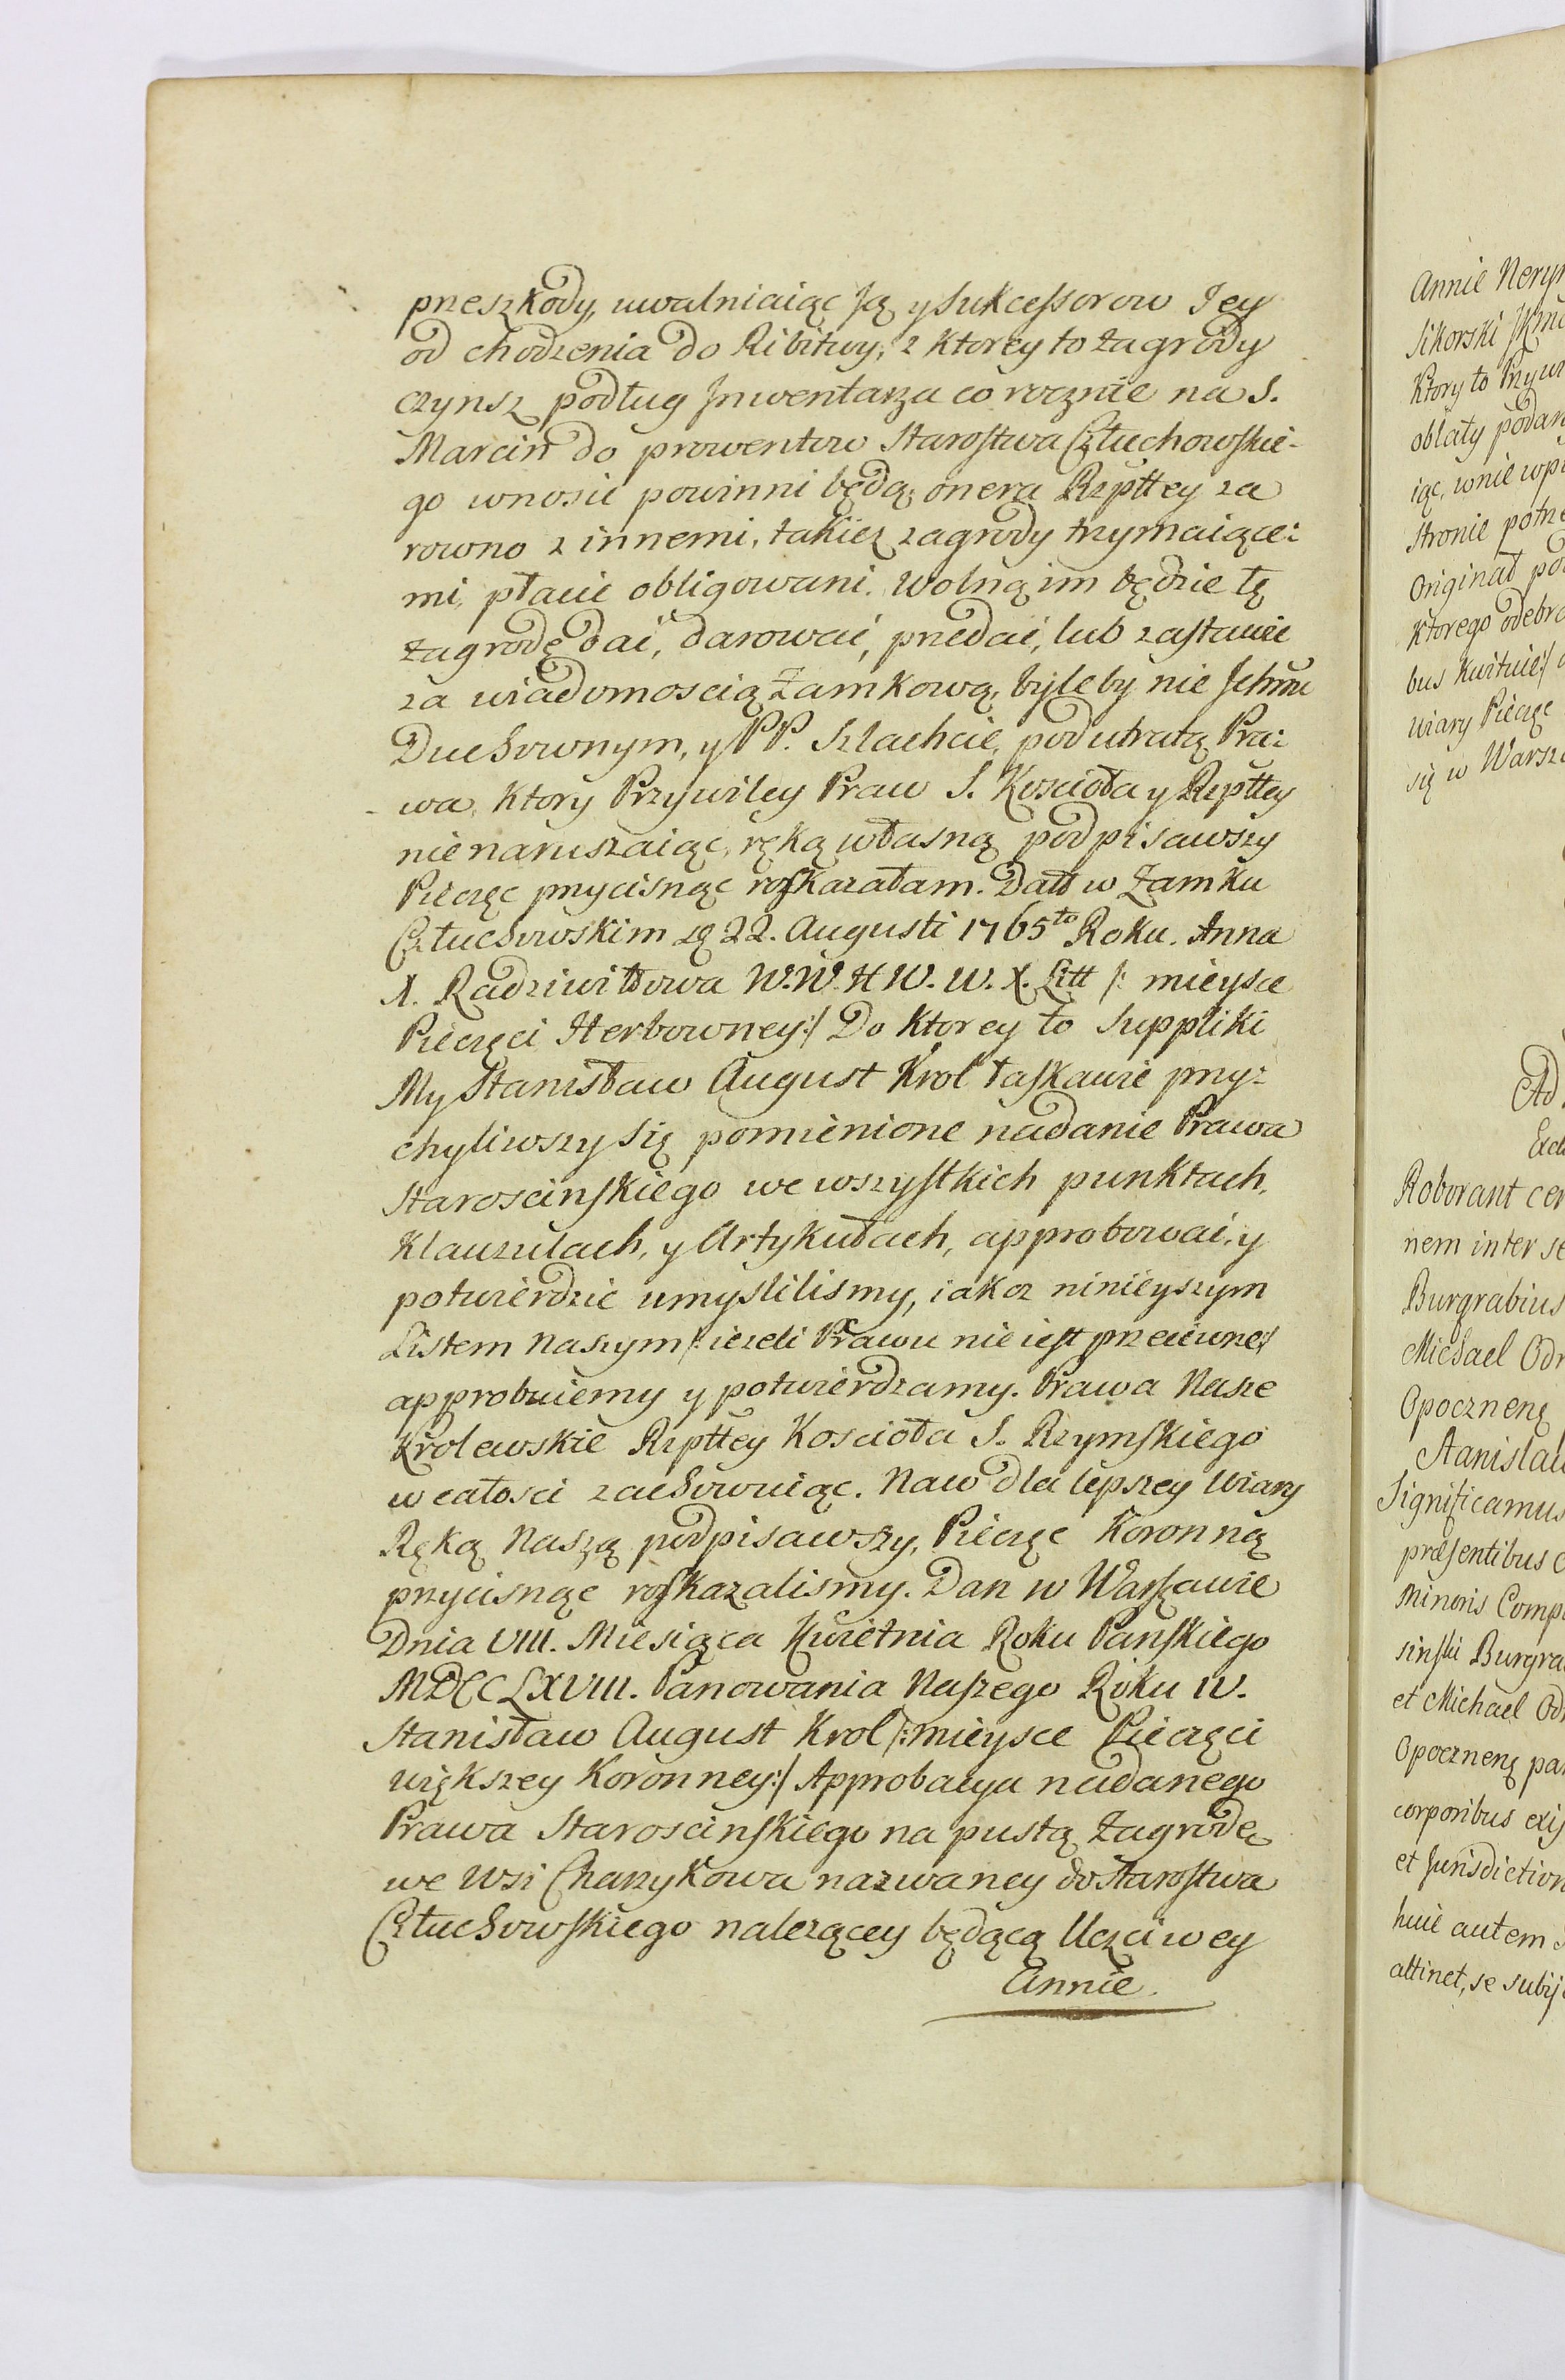 przeszkody, uwalniaiąc Ją y Sukcessorow Jey
od chodzenia do Ribitwy, z ktorey to Zagrody
czynsz podług Jnwentarza co rocznie na S.
Marcin do prowentow Starostwa Człuchowskie-
go wnosic powinni będą, onera Rzpttey za
rowno z innemi, takiez zagrody trzymaiące-
mi, płacic obligowani. Wolną im będzie tę
Zagrodę dai, darowai, przedai, lub zastawic
za wiadomoscią Zamkową, byle by nie Jchmu
Duchownym, y PP. Szlachcie, pod utratą Pra-
wa, ktory Przywiley Praw S. Koscioła y Rzpttey
nienaruszaiąc, ręką własną podpisawszy
Pieczęc przycisnąc roskazałam. Datt w Zamku
Człuchowskim 22. Augusti 1765to Roku. Anna
X. Radziwiłłowa W. W. H W. W. X. Litt /: mieysce
Pieczęci Herbowney :/ Do ktorey to Suppliki
My Stanisław August Krol łaskawie przy-
chyliwszy się pomienione nadanie Prawa
Staroscinskiego we wszystkich punktach,
Klauzulach, y Artykułach, approbowai, y
potwierdzic umyslilismy, iakoz ninieyszym
Listem Naszym /: iezeli Prawu nie iest przeciwne :/
approbuiemy y potwierdzamy. Prawa Nasze
Krolewskie Rzpttey Kosciola S. Rzymskiego
w całosci zachowuiąc. Naco dla lepszey Wiary
Ręką Naszą podpisawszy, Pieczęc Koronną
przycisnąc roskazalismy. Dan w Warszawie
Dnia VIII. Miesiąca Kwietnia Roku Panskiego
MDCCLXVIII. Panowania Naszego Roku IV.
Stanisław August Krol /: mieysce Pieczęci
większey Koronney :/ Approbacya nadanego
Prawa Staroscinskiego na pustą Zagrodę
we Wsi Charzykowa nazwaney do Starostwa
Człuchowskiego nalezącey będącą Uczciwey
Annie.
Annie
Sikorski
Ktory to
oblaty
iąc, w nie
Stronie
Originał
Ktorego
bus Kwituie :/
Wiary Pieczęc
się w
Ad
Roborant
nem inter
Burgrabius
Michael
Opoczneną
Significamus
præsentibus
Minoris
Burgra
et Michael
Opoczneną
corporibus
et
huic autem
attinet, se